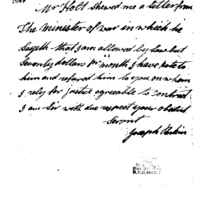 Mr Holt shewed me a letter from
The Minister of war in which he
Sayeth that I am allowed by law but
Seventy dollars pr month, I have wrote to
him and refered him to you on whom
I rely for justice agreeable to contract
I am Sir with due respect your obedient
Servant
Joseph